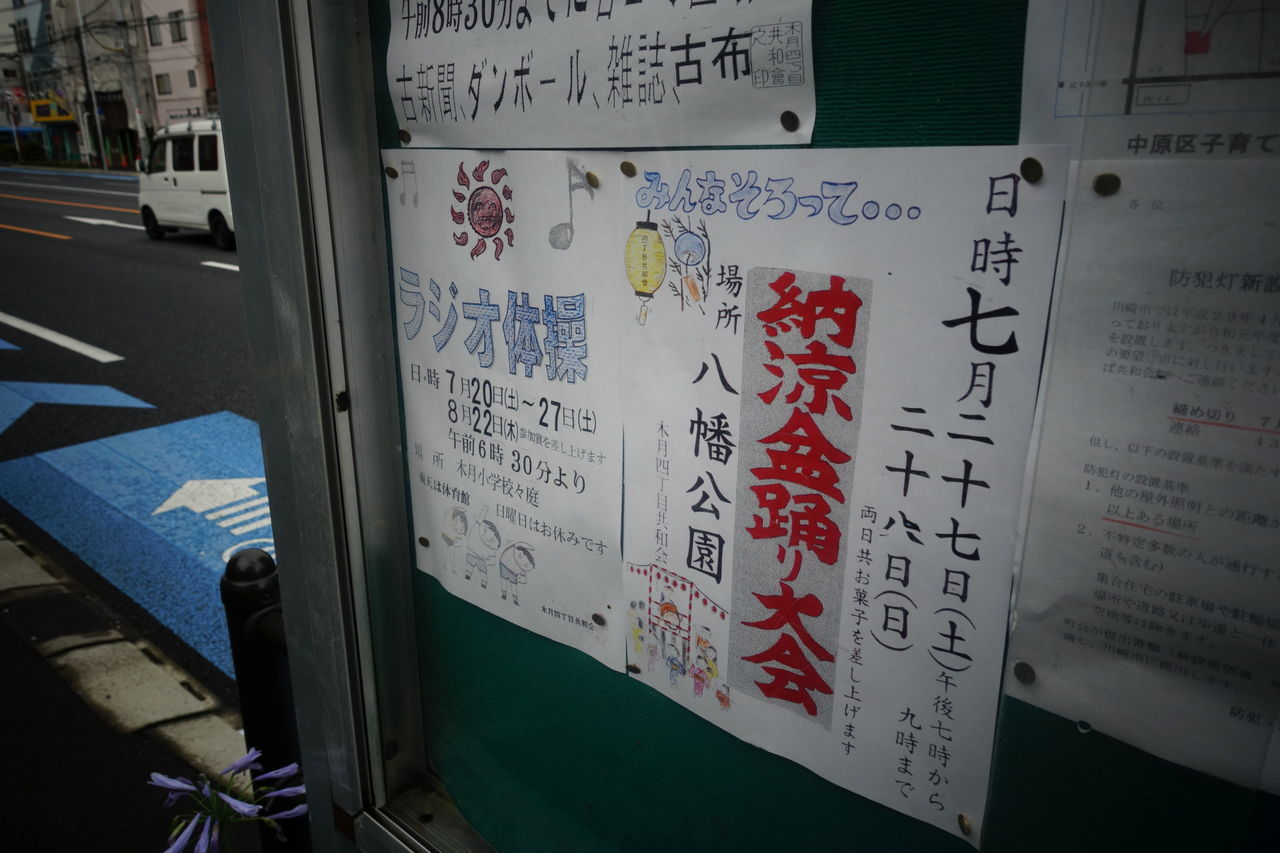 午前8時30分まで
古新聞、ダンボール、雑誌、古布
木月四丁目共和會之印
ラジオ体操
日・時 7月20日(土)～27日(土)
8月22日(木)参加賞を差し上げます
午前6時30分より
場 所 木月小学校々庭
雨天は体育館
日曜日はお休みです
木月四丁目共和会
みんなそろって...
日時 七月二十七日(土)午後七時から
二十八日(日) 九時まで
両日共お菓子を差し上げます
納涼盆踊り大会
場所 八幡公園
木月四丁目共和会
中原区子育て
各位
防犯灯新設
川崎市では平成29年4
っておりますが令和元年度
を設置します。つきまして
の要望
連絡
締め切り 7
但し、以下の設置基準を満た
防犯灯の設置基準
1. 他の屋外照明との距離が
以上ある場所
2. 不特定多数の人が通行す
道も含む)
集合住宅の駐車場や駐輪場
場所や道路又は歩道と一体
空地等は除きます。
町会が提出書類(新設要望書、
備し、川崎市に提出します
防犯・